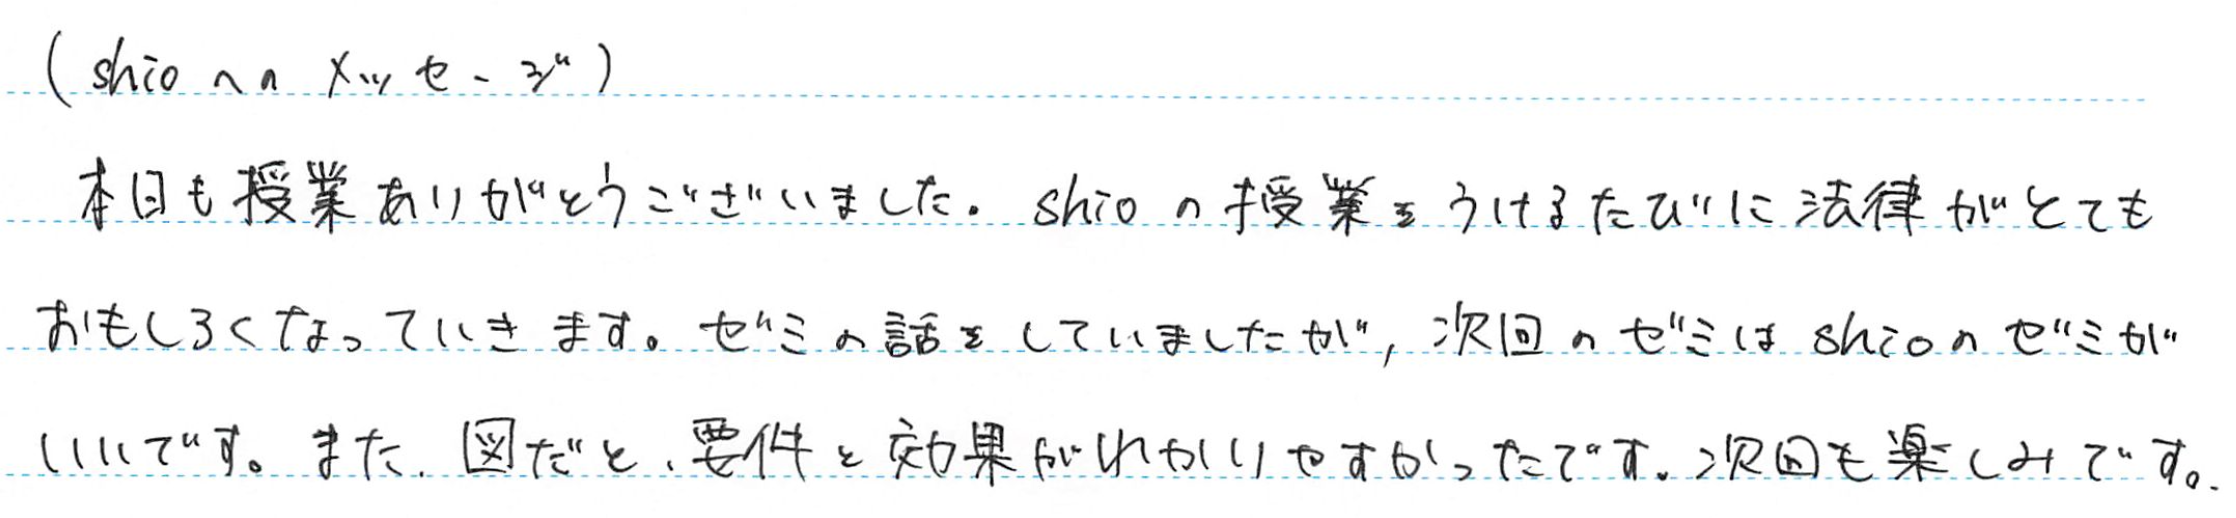 (shioへのメッセージ)
本日も授業ありがとうございました。shioの授業をうけるたびに法律がとても
おもしろくなっていきます。ゼミの話をしていましたが,次回のゼミはshioのゼミが
いいです。また、図だと、要件と効果がわかりやすかったです。次回も楽しみです。